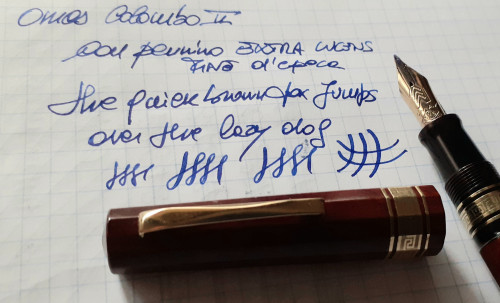 Omas Colombo II
con pennino EXTRA LUCENS
FINE d'epoca
the quick brown fox jumps
over the lazy dog